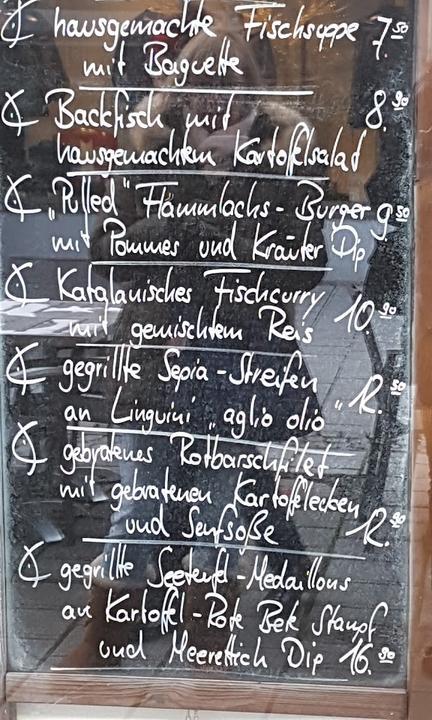 hausgemachte Fischsuppe 7.50
mit Baguette
Backfisch mit 8.90
hausgemachtem Kartoffelsalad
„Pulled" Flammlachs-Burger 9.50
mit Pommes und Kräuter Dip
Katalanisches Fischcurry
mit gemischtem Reis 10.90
gegrillte Sepia-Streifen
an Linguini „aglio olio" 12.50
gebratenes Rotbarschfilet
mit gebratenen Kartoffelecken
und Senfsoße 12.90
gegrillte Seeteufel-Medaillons
an Kartoffel-Rote Bete Stampf
und Meerettich Dip 16.90